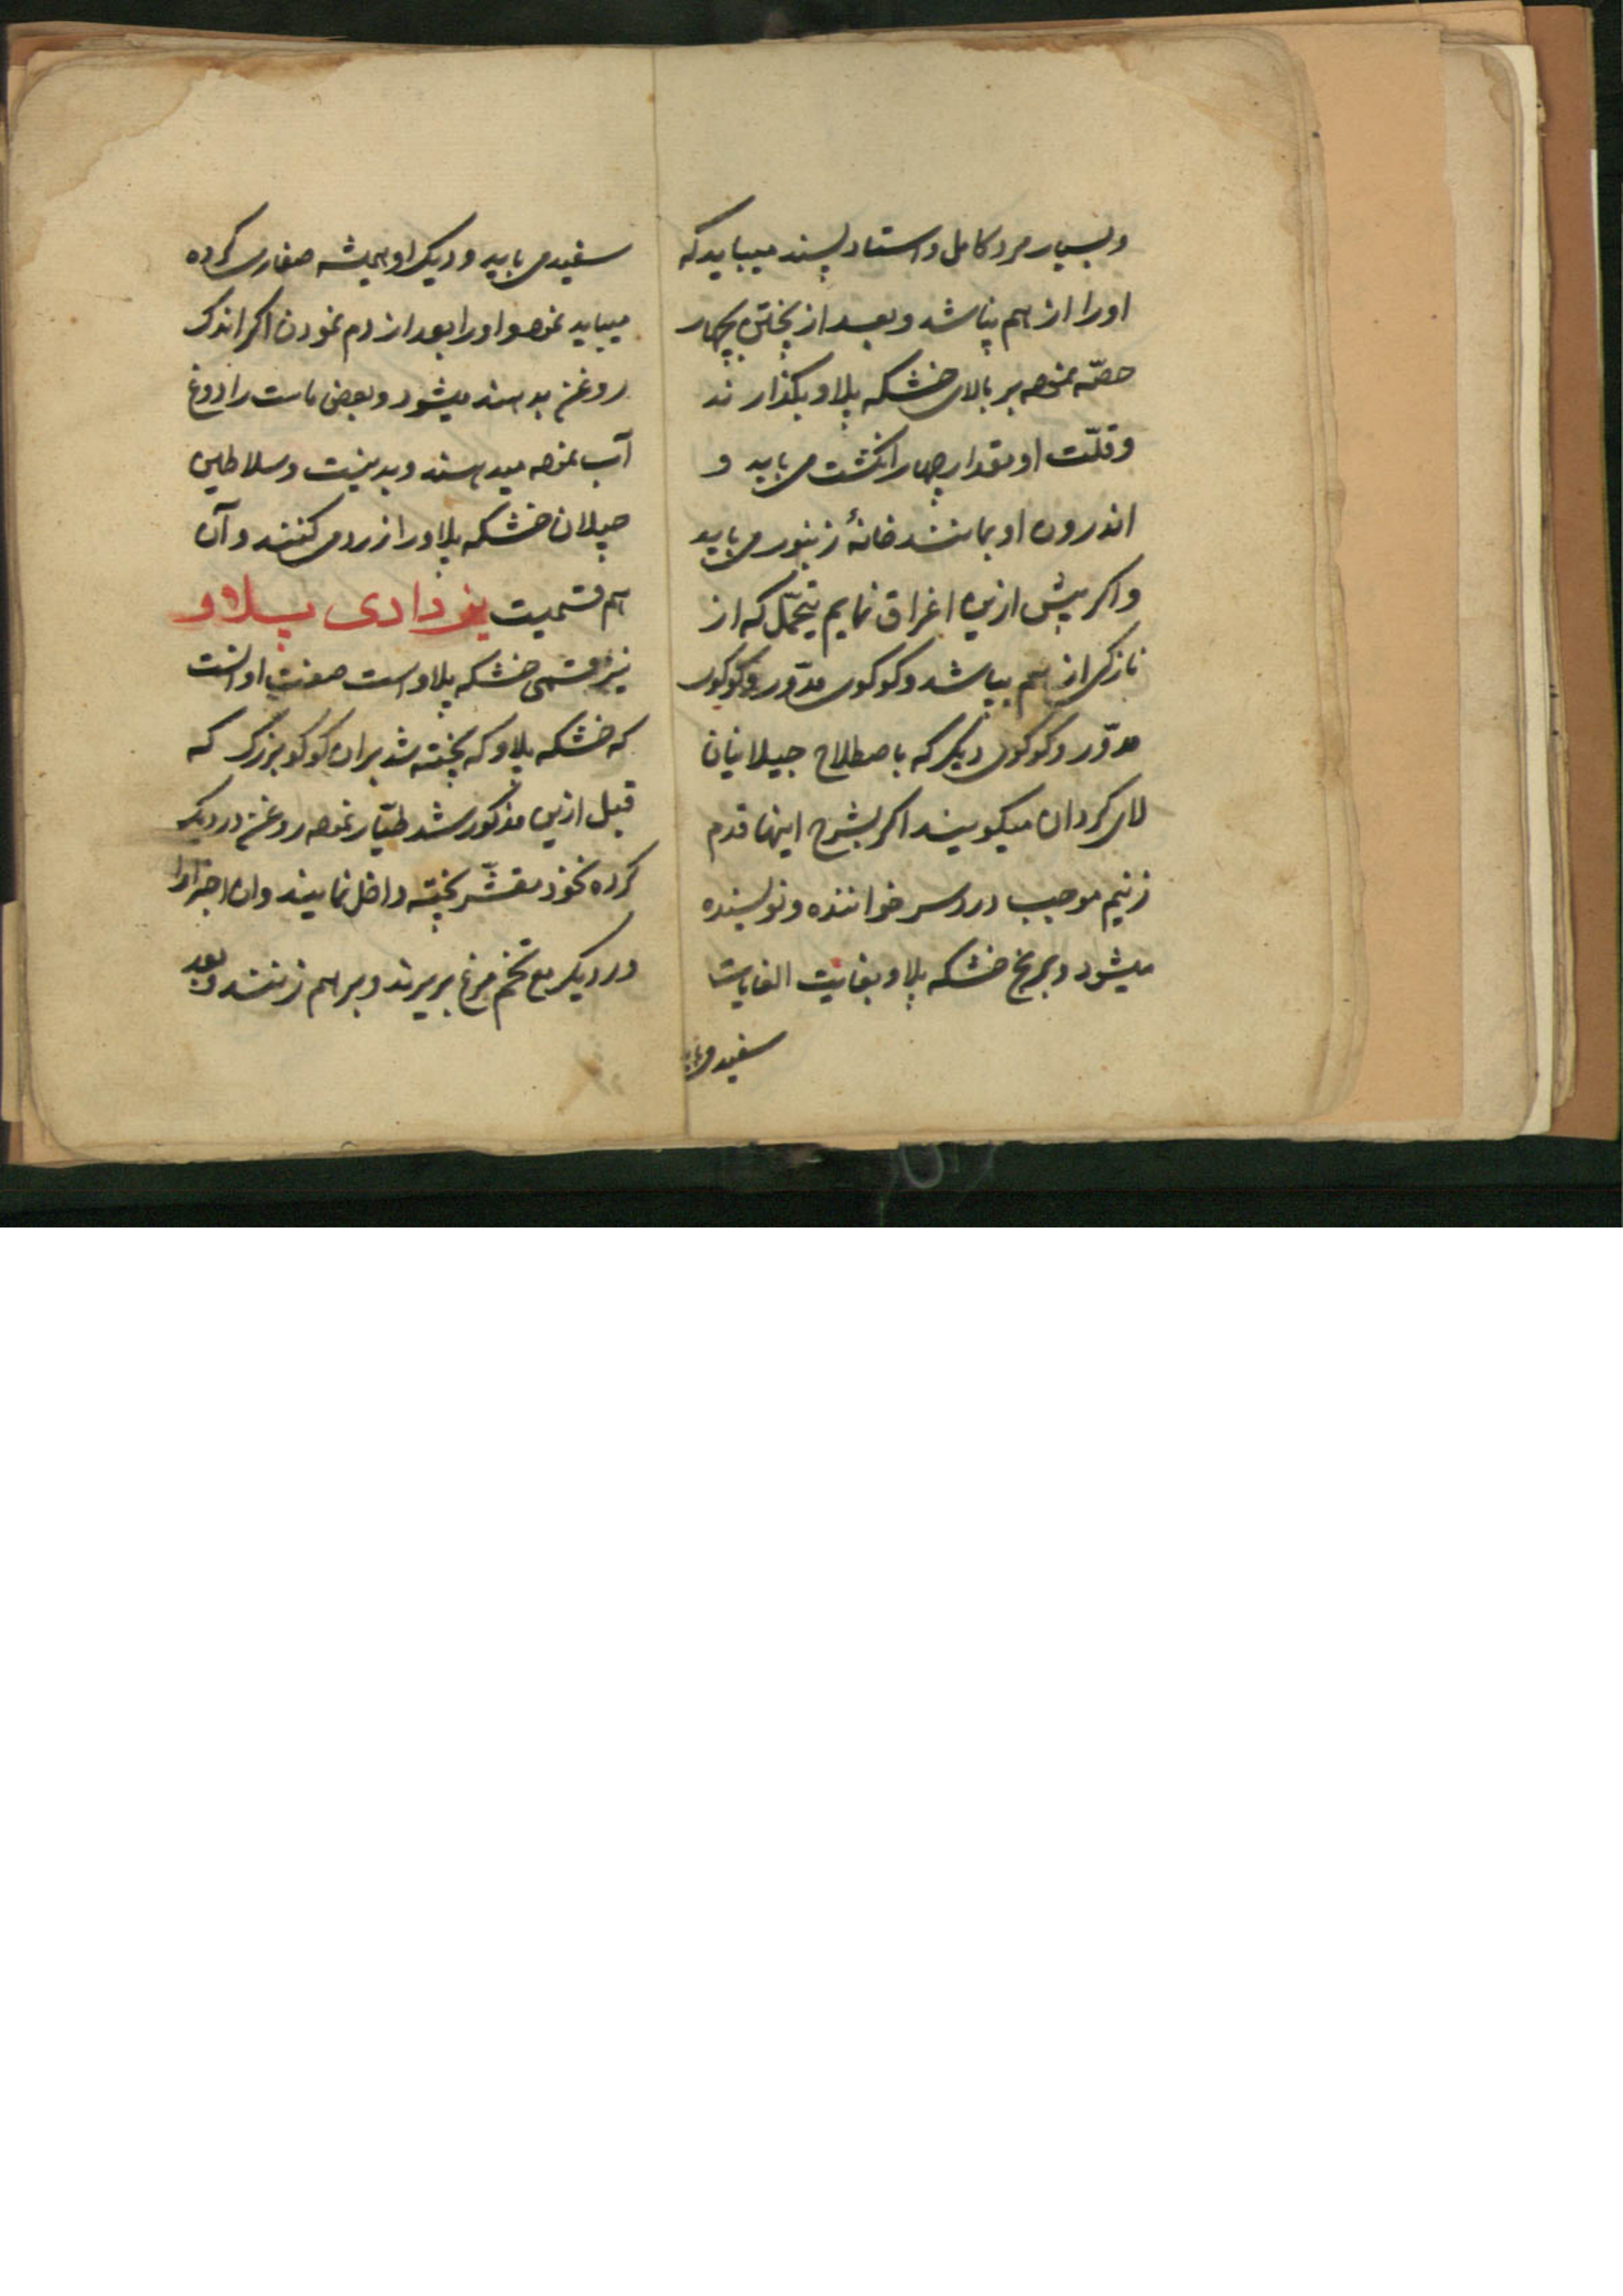 وبسیار مرد کامل و استاد پسند میباید که
اورا از هم پباشد و بعد از پختن چهار
حصّه نموده بر بالای خشکه پلاو بگذارند
و قلّت او بقدار چهار انگشت می باید و
اندرون او بمانند خانهٔ زنبور می باید
واکر بیش ازین اغراق نمایم یتحمّل که از
نازکی از هم بپاشد وکوکوی مدّور وکوکوی
مدّور وکوکوی دیکر که باصطلاح جیلانیان
لای کردان میکویند اکر بشرح اینها قدم
زنیم موجب دردسر خواننده ونویسنده
میشود و برنج خشکه پلاو بغایت الغایات
سفید می باید
سفید می باید و دیک او همیشه صفاری کرده
میباید نمود و اورا بعد از دم نمودن اکر اندک
روغن بدهند میشود و بعضی ماست را دوغ
آب نموده میدهند و بدنیست و سلاطین
جیلان خشکه پلاو را زرد می کنند و آن
هم قسمیت پلاو
نیز قسمی خشکه پلاو است صفت او انست
که خشکه پلاو که پخته شد بران کوکو بزرک که
قبل ازین مذکور شد طیّار نموده روغن در دیک
کرده نخود مقشّر پخته داخل نمایند وان اجزا را
در دیک مع تخم مرغ بریزند و بر هم زنند و بعد